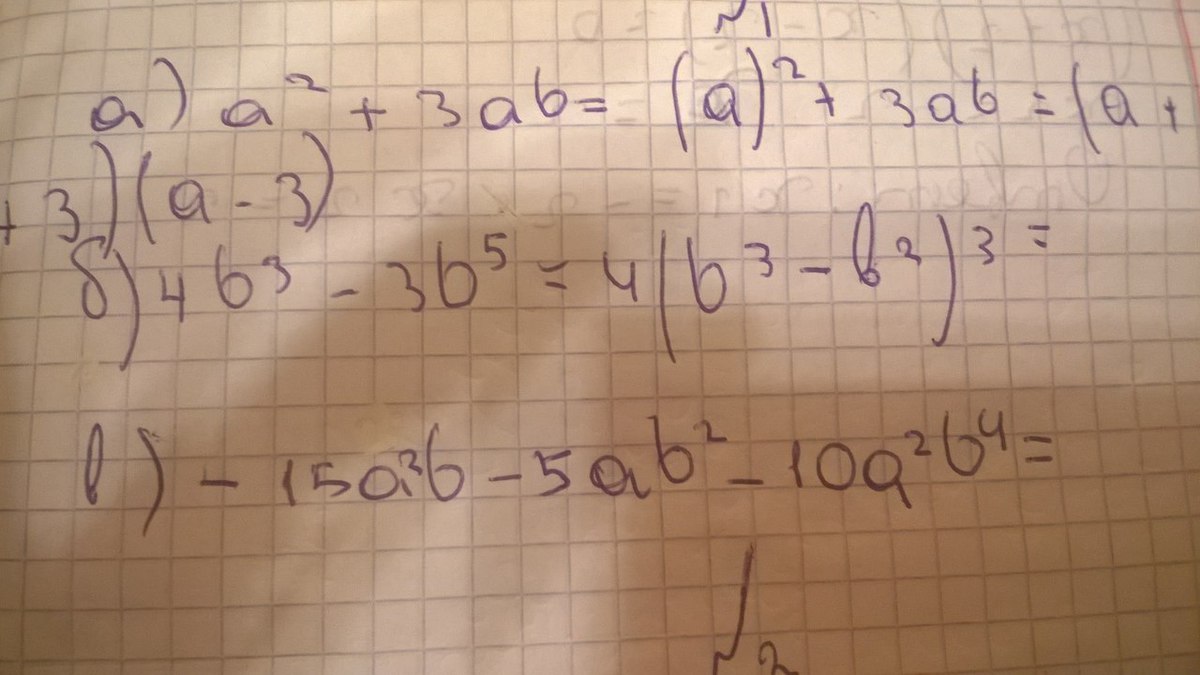 №1
а) a² + 3ab = (a)² + 3ab = (a +
+ 3)(a - 3)
б) 4b³ - 3b⁵ = 4(b³ - b³)³ =
в) - 15a²b - 5ab² - 10a²b⁴ =
№2